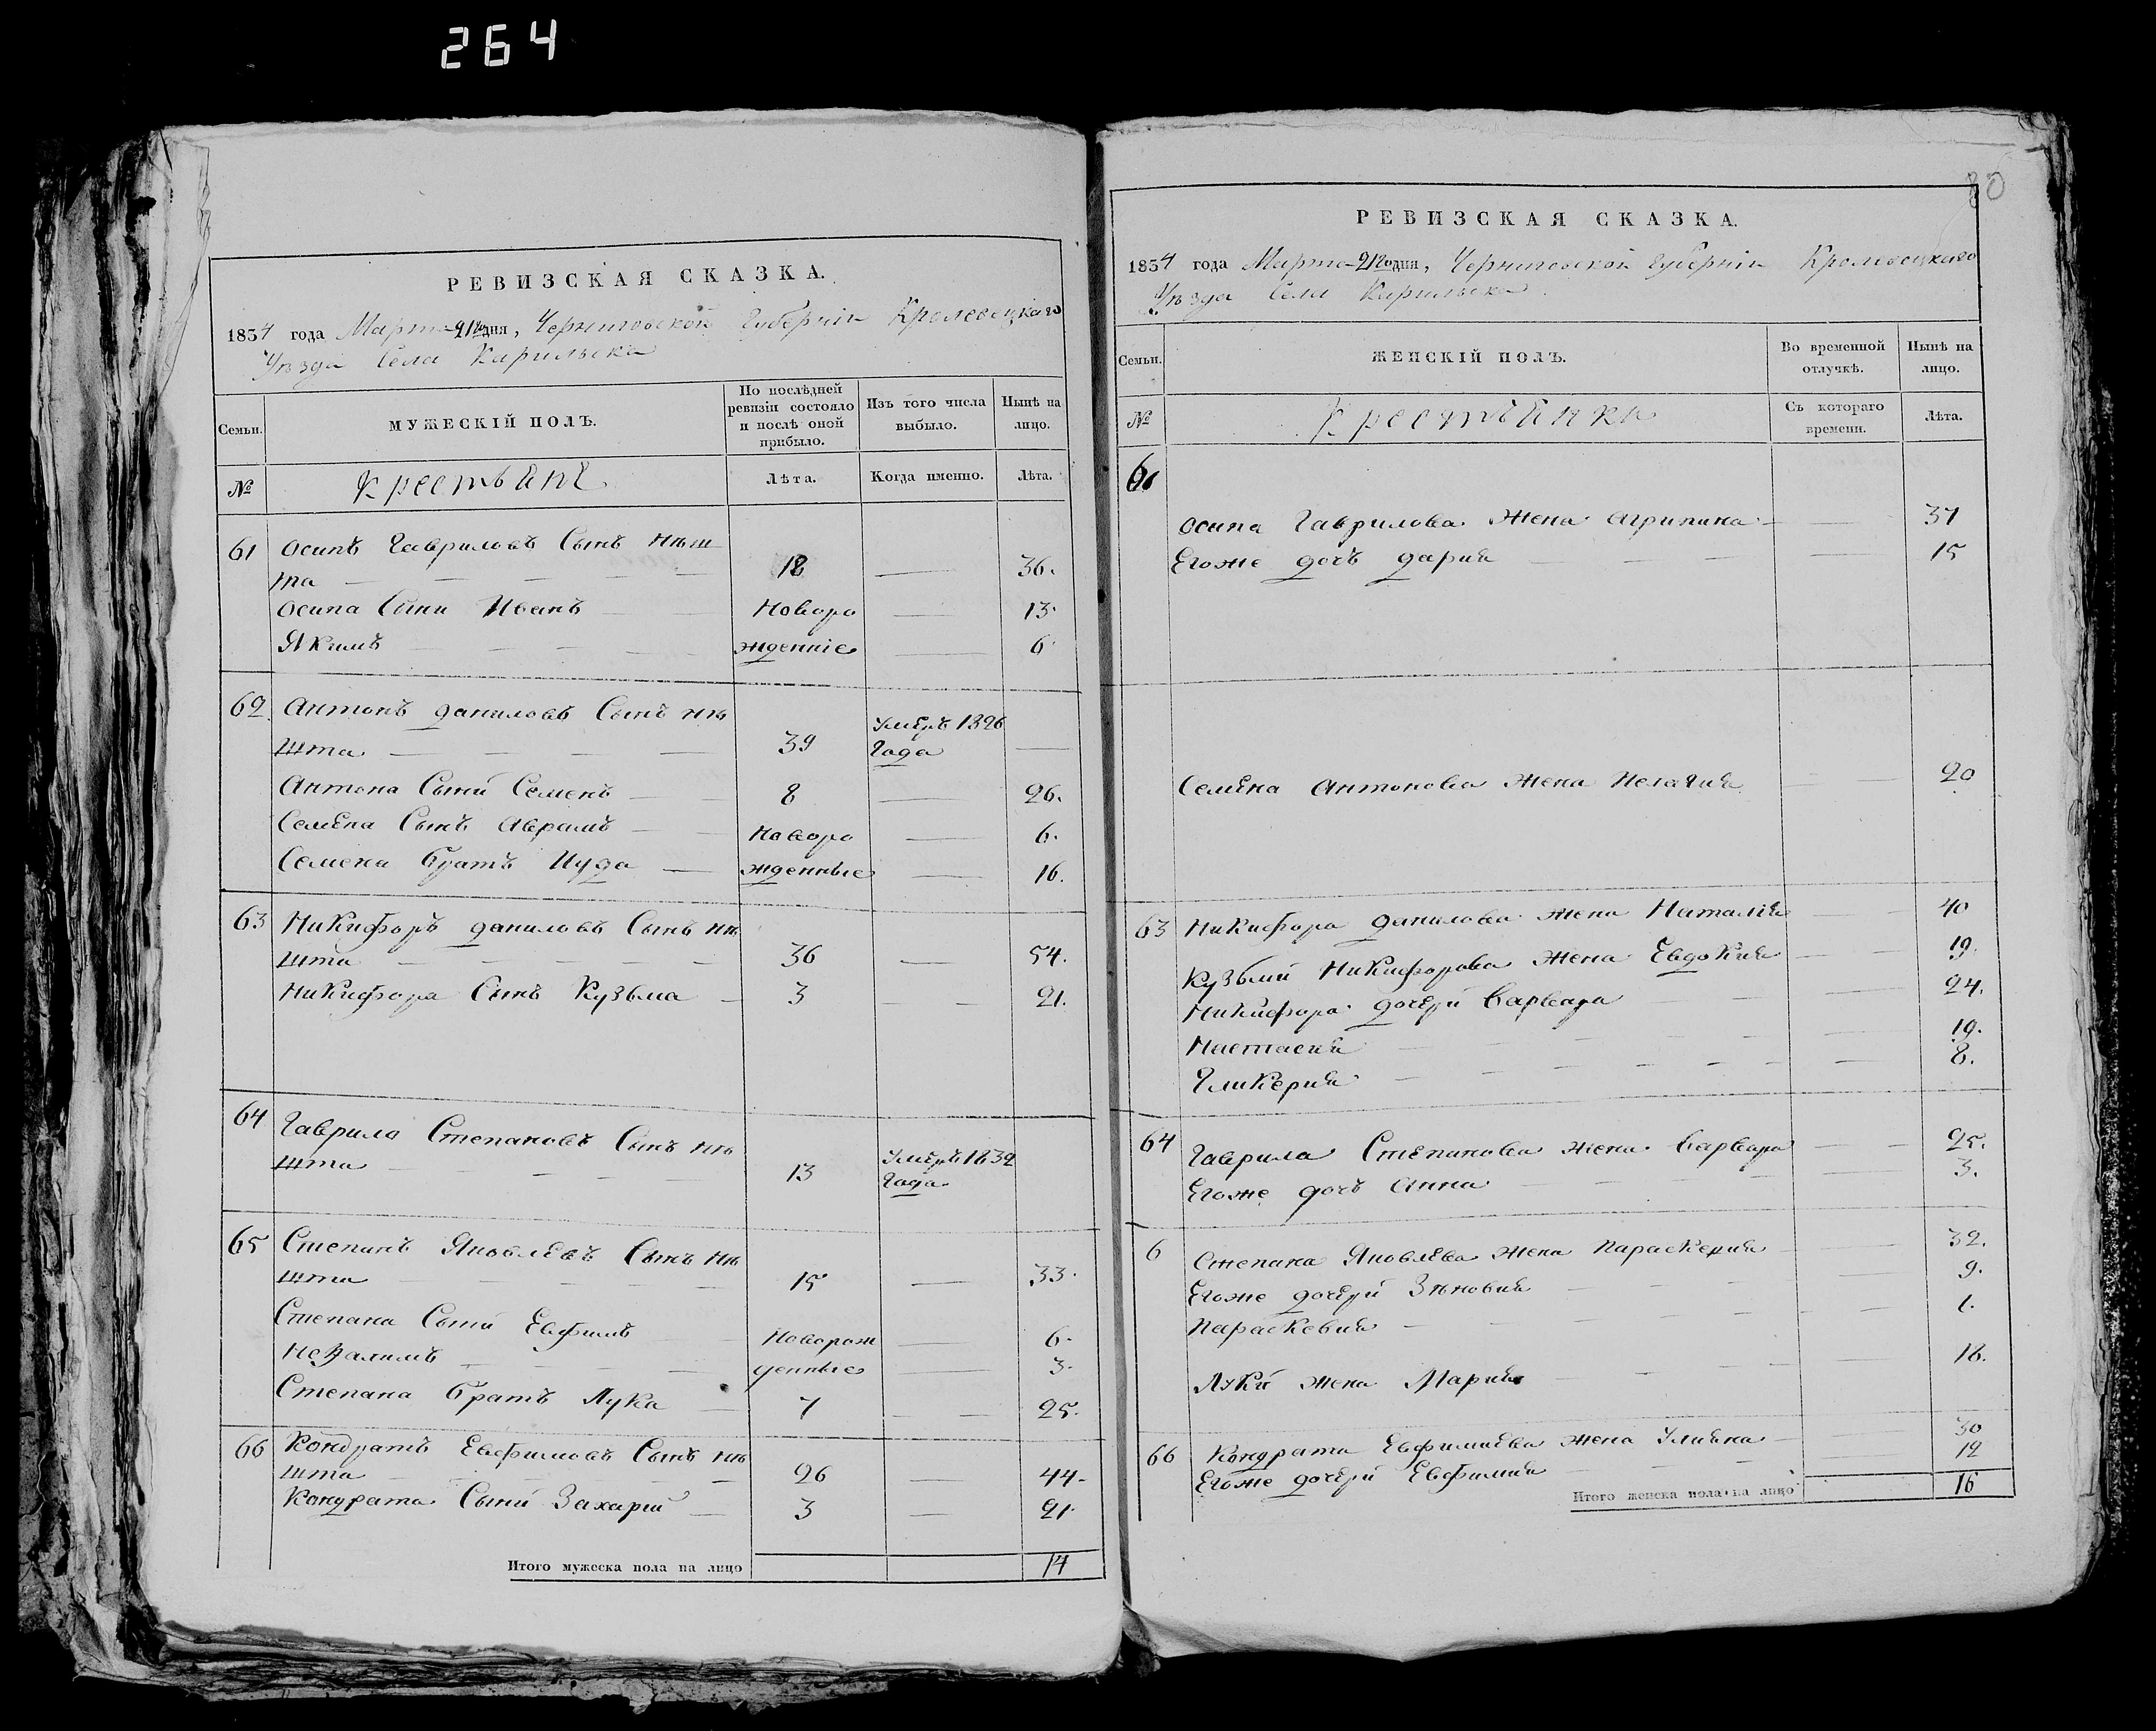 264
РЕВИЗСКАЯ СКАЗКА.
1834 года Марта 21го дня, Черниговской Губернiи Кролевецкаго
Уѣзда Села Карильска
Семьи.
МУЖЕСКІЙ ПОЛЪ.
По послѣдней ревизіи состояло и послѣ оной прибыло.
Изъ того числа выбыло.
Нынѣ на лицо.
№
Крестьяне
Лѣта.
Когда именно.
Лѣта.
61 Осипъ Гавриловъ Сынъ
та 18 36.
Осипа Сыни Иванъ Новоро 13.
Якимъ жденнiе 6
62. Антонъ Даниловъ Сынъ Нѣ Умеръ 1826
шта 39 Года
Антона Сыни Семенъ 8 26.
Семена Сынъ Аврамъ Новоро 6.
Семена братъ Иуда жденные 16.
63 Никифоръ Даниловъ Сынъ Нѣ
шта 36 54.
Никифора Сынъ Кузьма 3 21.
64 Гаврило Степановъ Сынъ Нѣ Умеръ 1832
шта 13 Года
65 Степанъ Яковлевъ Сынъ Нѣ
шта 15 33.
Степана Сыни Евфимъ Новорож 6.
денные 3.
Степана братъ Лука 7 25.
66 Кондратъ Евфимовъ Сынъ Нѣ
шта 26 44.
Кондрата Сыни Захарiй 3 21.
Итого мужеска пола на лицо 14
80
РЕВИЗСКАЯ СКАЗКА.
1834 года Марта 21го дня, Черниговской Губернiи Кролевецкаго
Уѣзда Села Карильска
Семьи.
ЖЕНСКІЙ ПОЛЪ.
Во временной отлучкѣ.
Нынѣ на лицо.
№
Крестьянки
Съ котораго времени.
Лѣта.
61
Осипа Гаврилова Жена Агрипина 37
Егоже дочъ Дария 15
Семена Антонова Жена Пелагия 20
63 Никифора Данилова жена Наталiя 40
Кузьми Никифорова жена Евдокия 19.
Никифора дочери Варвара 24.
Настасия 19.
Гликерия 8.
64 Гаврила Степанова жена Варвара 25.
Егоже дочъ Анна 3.
6 Степана Яковлева жена Параскевия 32.
Егоже дочери Зѣновия 9.
Параскевия 1.
Луки жена Мария 18.
66 Кондрата Евфимиева жена Улияна 30
Егоже дочери Евфимия 12
Итого женска пола на лицо 16